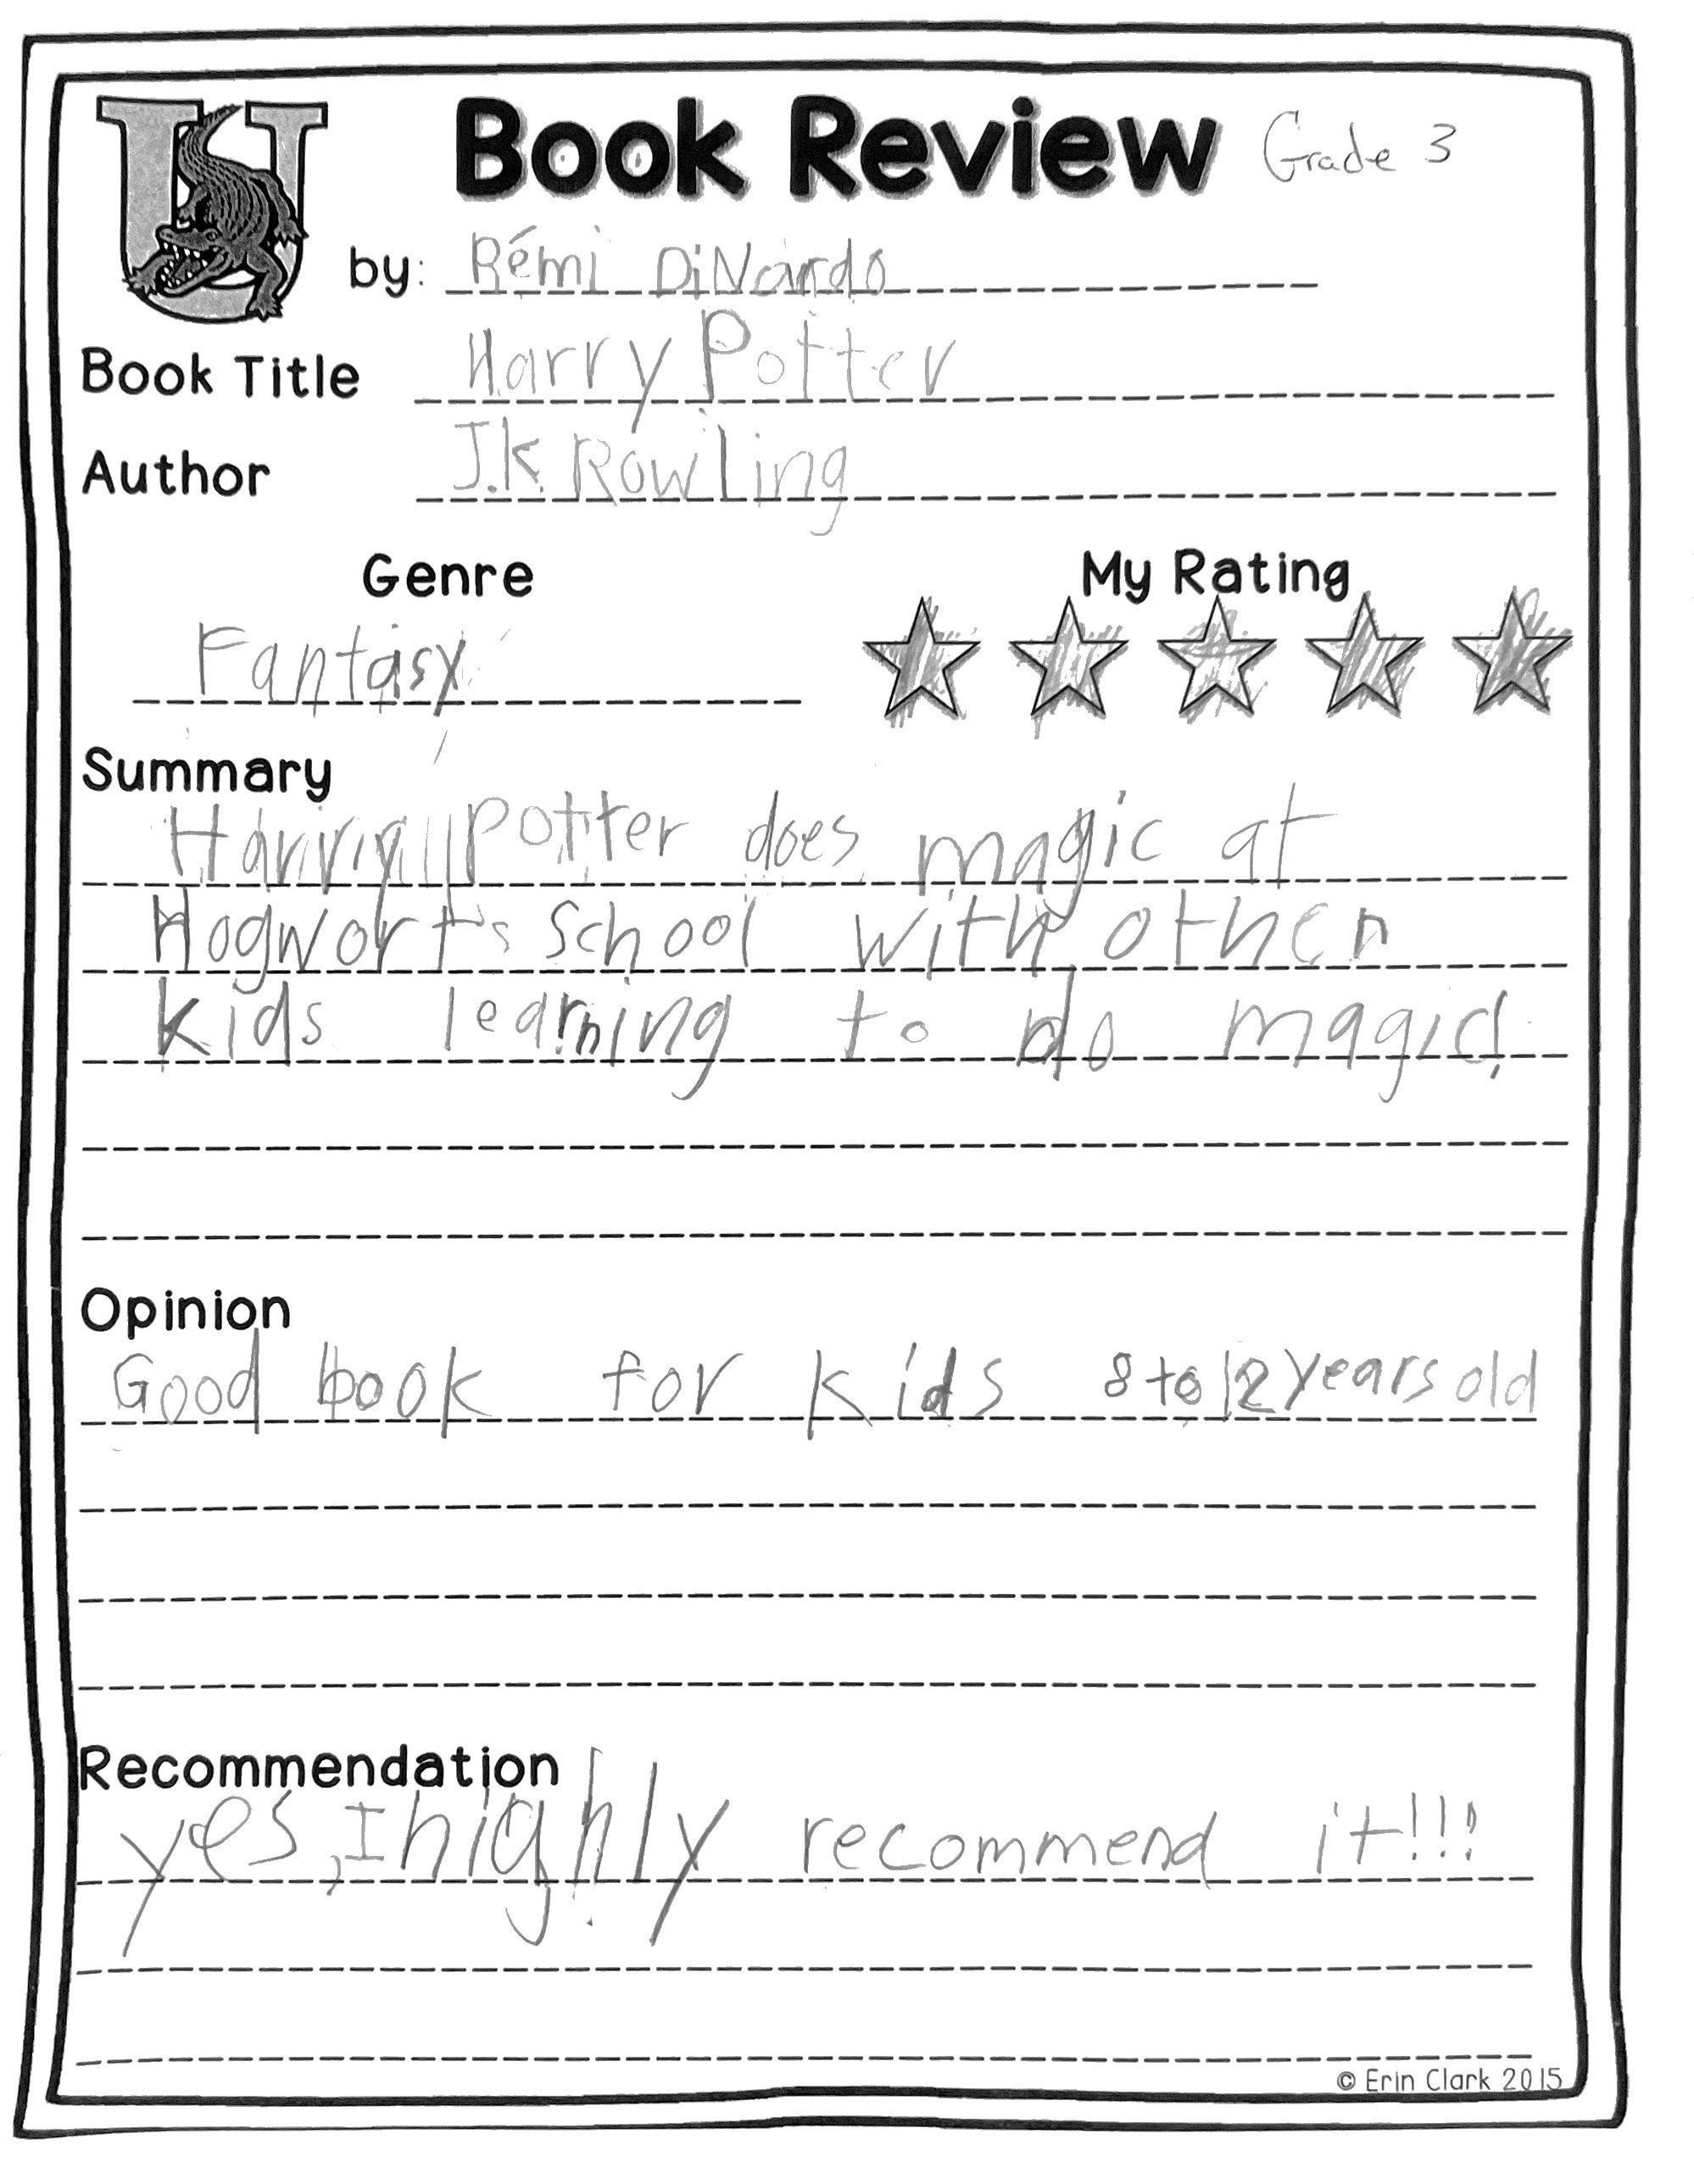 U
Book Review Grade 3
by: Rémi DiNardo
Book Title Harry Potter
Author J.K Rowling
Genre
My Rating
Fantasy
Summary
Harry Potter does magic at
Hogwort's School with other
kids learning to do magic!
Opinion
Good book for kids 8 to 12 years old
Recommendation
yes, I highly recommend it!!!
© Erin Clark 2015